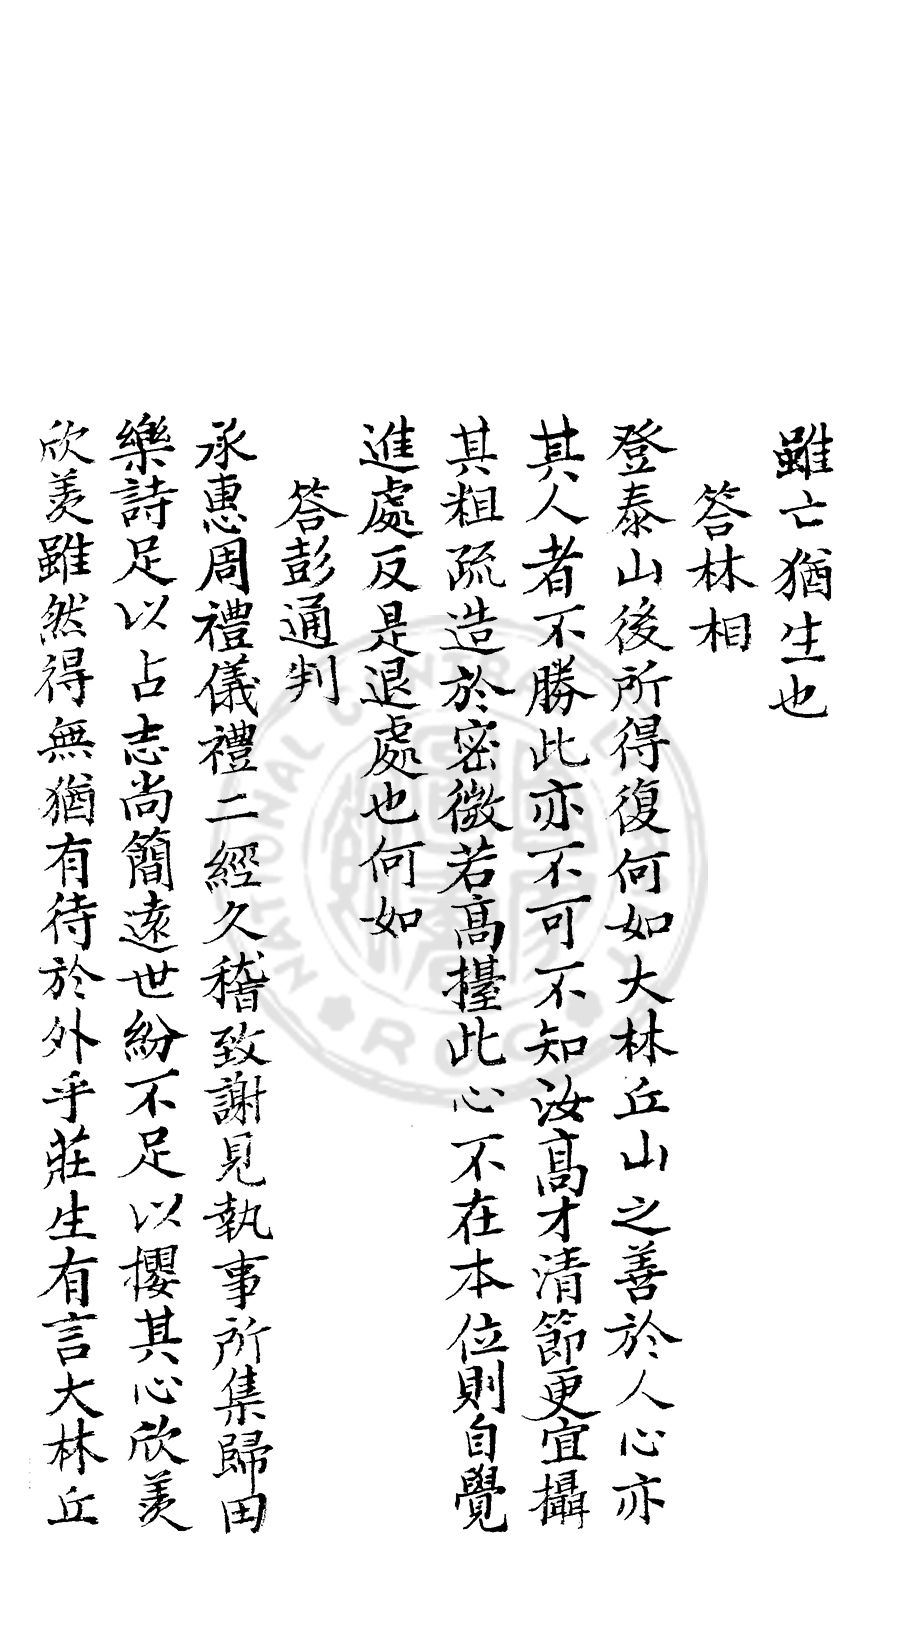 雖亡猶生也
答林相
登泰山後所得復何如大林丘山之善於人心亦
其人者不勝此亦不可不知汝高才清節更宜攝
其粗疏造於密微若高擡此心不在本位則自覺
進處反是退處也何如
答彭通判
承惠周禮儀禮二經久稽致謝見執事所集歸田
樂詩足以占志尚簡遠世紛不足以攖其心欣羨
欣羨雖然得無猶有待於外乎莊生有言大林丘
NATIONAL CENTRAL LIBRARY R.O.C